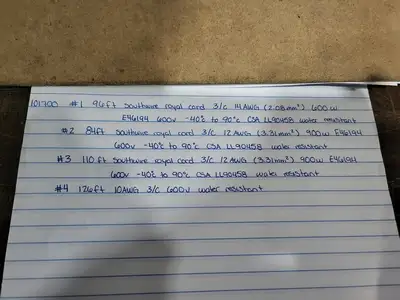 101700 #1 96ft Southwire royal cord 3/c 14AWG (2.08mm²) 600w
E46194 600v -40°c to 90°c CSA LL90458 water resistant
#2 84ft Southwire royal cord 3/c 12AWG (3.31mm²) 900w E46194
600v -40°c to 90°c CSA LL90458 water resistant
#3 110ft Southwire royal cord 3/c 12AWG (3.31mm²) 900w E46194
600v -40°c to 90°c CSA LL90458 water resistant
#4 126ft 10AWG 3/c 600v water resistant